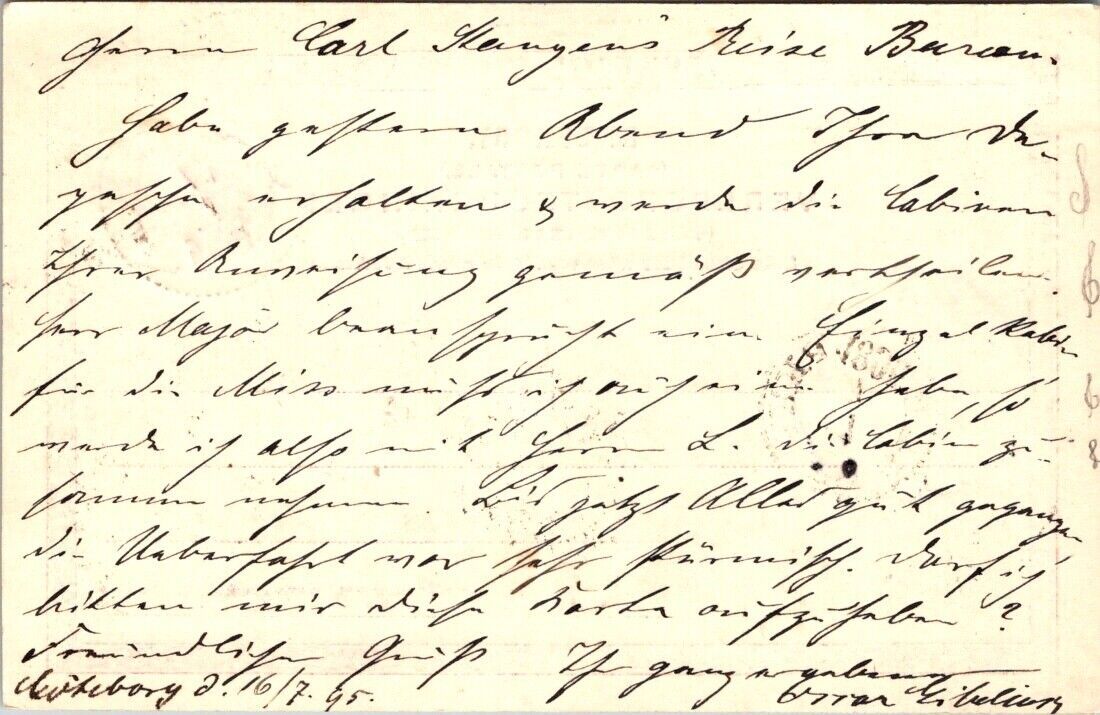 Herrn Carl Stangen's Reise Bureau.
Habe gestern Abend Ihre De-
pesche erhalten & werde die Cabinen
Ihrer Anweisung gemäß vertheilen.
Herr Major beansprucht eine Einzel Kabine
für die Miss muß ich auch eine haben, so
werde ich also mit Herrn L. die Cabine zu-
sammen nehmen. Bis jetzt Alles gut gegangen
die Ueberfahrt war sehr stürmisch. Darf ich
bitten mir diese Karte aufzuheben?
Freundlichen Gruß Ihr ganz ergebener
Göteborg d. 16/7. 95. Oscar